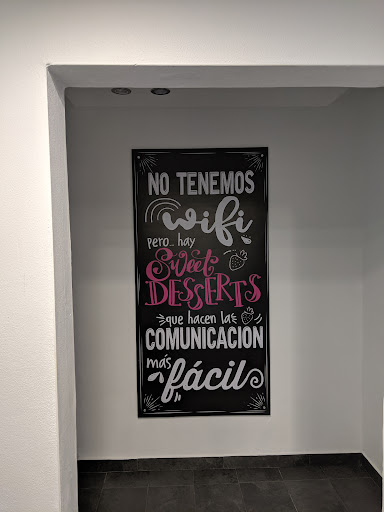 NO TENEMOS
wifi
pero... hay
Sweet
DESSERTS
que hacen la
COMUNICACION
más
fácil